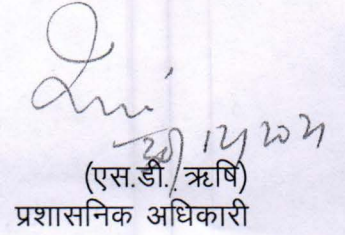 20/12/2021
(एस.डी. ऋषि)
प्रशासनिक अधिकारी